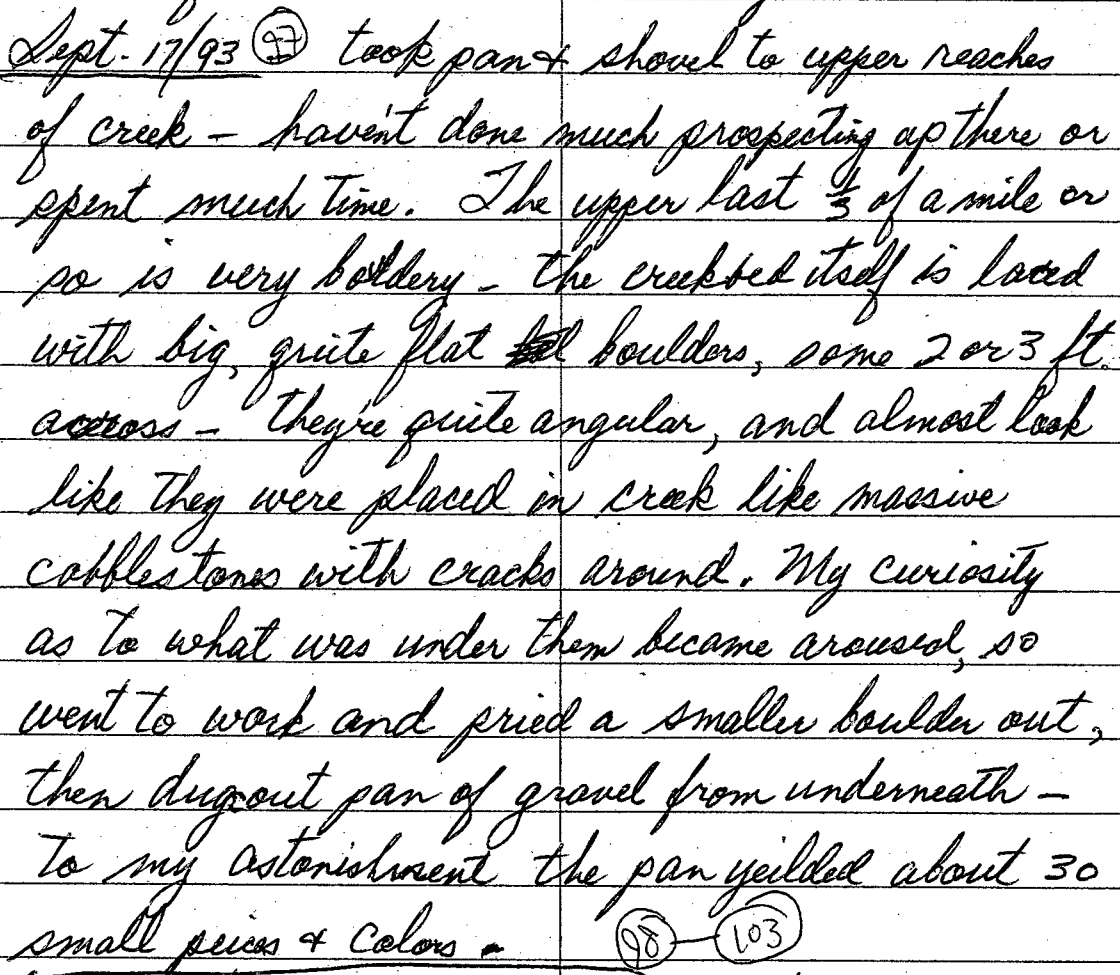 Sept. 17/93 97 took pan & shovel to upper reaches
of creek - haven't done much prospecting up there or
spent much time. The upper last 1/3 of a mile or
so is very boldery - the creekbed itself is laced
with big, quite flat boulders, some 2 or 3 ft.
across - they're quite angular, and almost look
like they were placed in creek like massive
cobblestones with cracks around. My curiosity
as to what was under them became aroused, so
went to work and pried a smaller boulder out,
then dug out pan of gravel from underneath -
to my astonishment the pan yeilded about 30
small peices & colors - 98 - 103